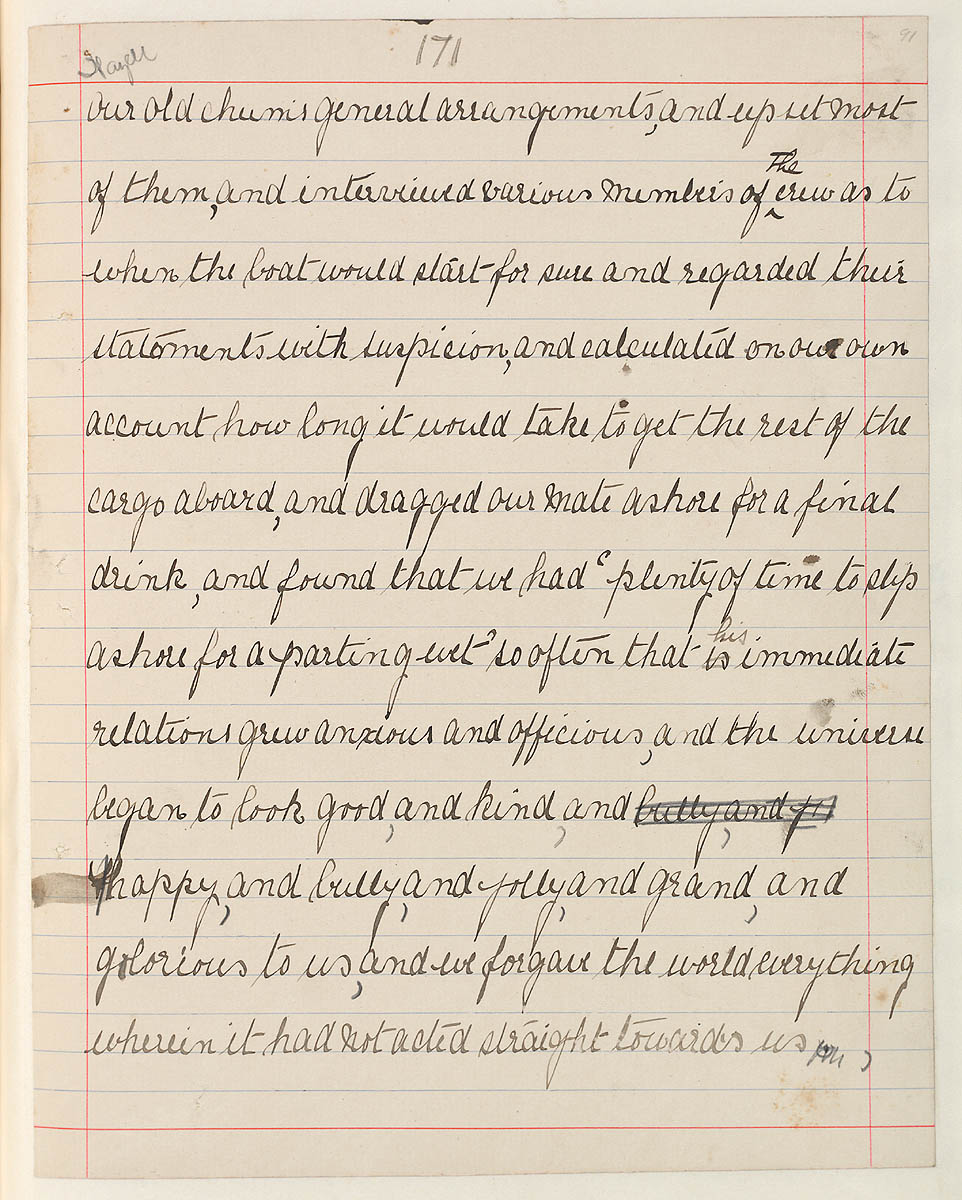 171
91
our old chum's general arrangements, and upset most
of them, and interviewed various members of The crew as to
when the boat would start for sure and regarded their
statements with suspicion, and calculated on our own
account how long it would take to get the rest of the
cargo aboard, and dragged our mate ashore for a final
drink, and found that we had "plenty of time to slip
ashore for a parting wet" so often that his immediate
relations grew anxious and officious, and the universe
began to look good, and kind, and bully, and
happy, and bully, and jolly, and grand, and
glorious to us, and we forgave the world everything
wherein it had not acted straight towards us